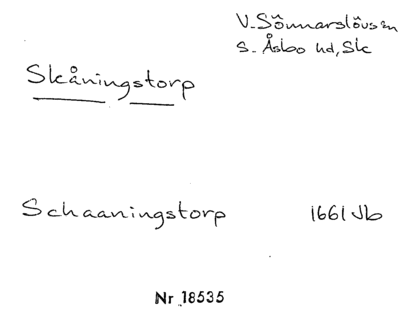 V. Sönnarslövs sn
S. Åsbo hd, Sk
Skåningstorp
Schaaningstorp 1661 Jb
Nr 18535